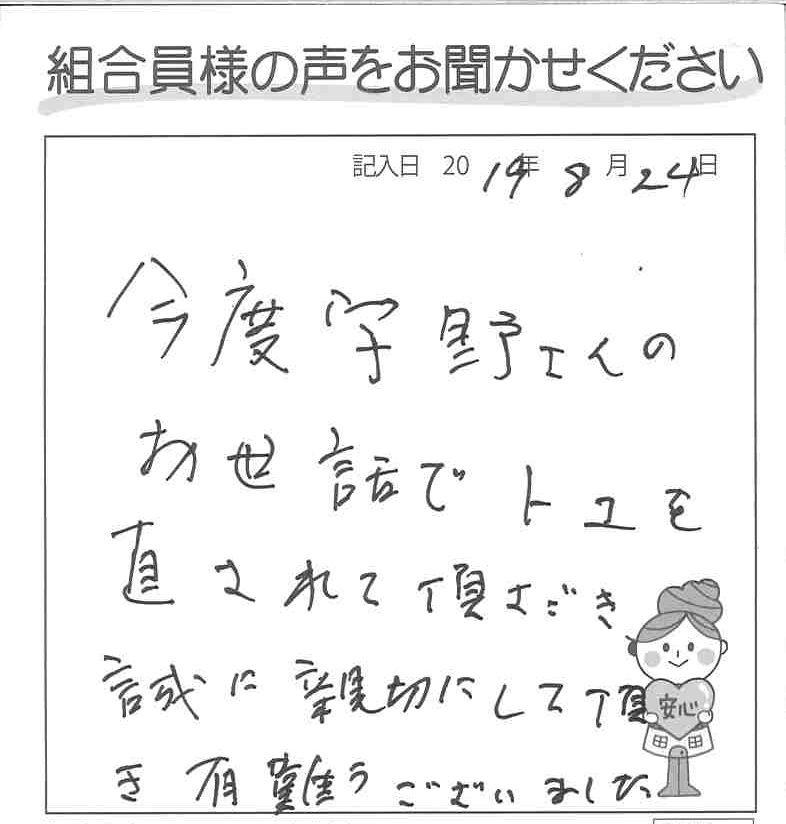 組合員様の声をお聞かせください
記入日 2019年 8月24日
今度宇野さんの
お世話でトユを
直されて頂きき
誠に親切にして頂
き有難うございました
安心